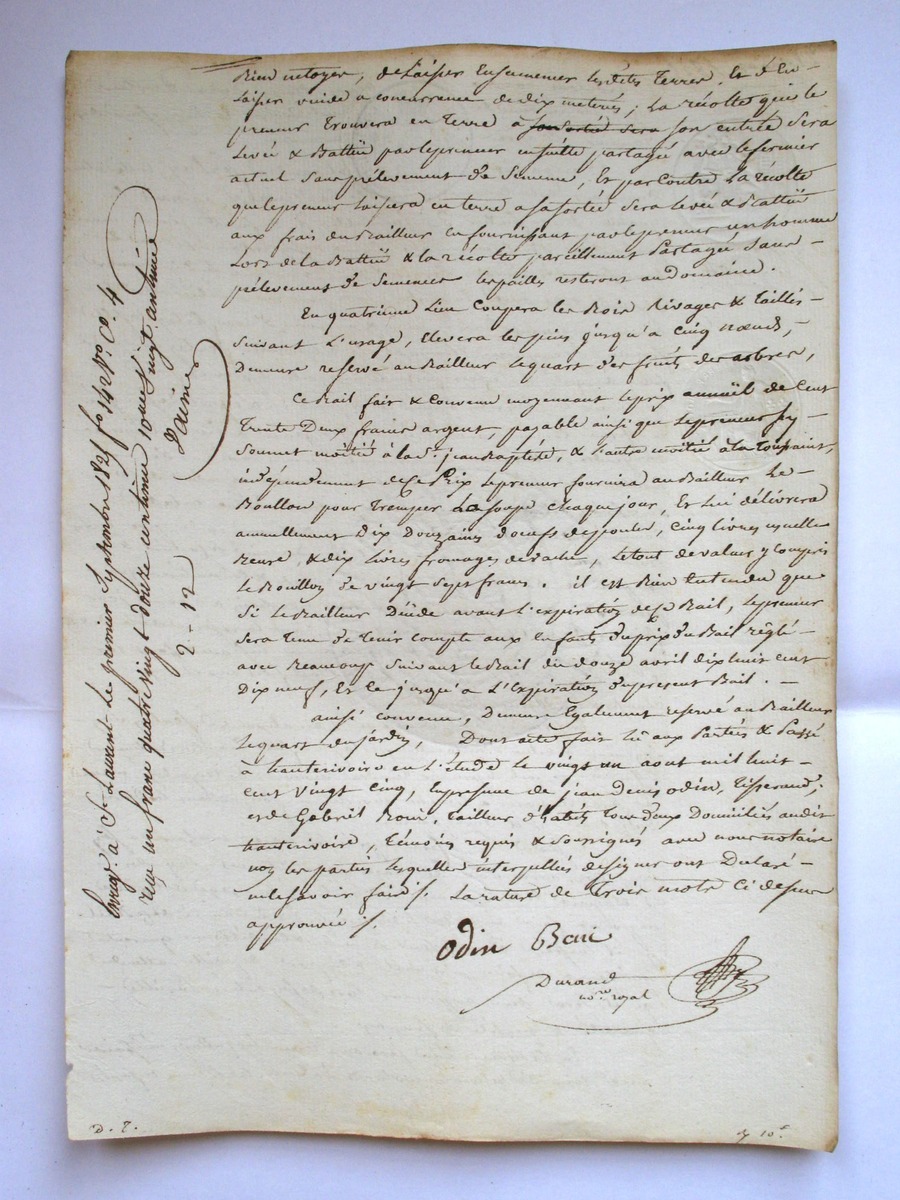 Bien netoyer, de Laisser Ensemencer lesdites Terres, Et d'En
Laisser vuide a concurrence de dix meterées; La récolte que le
preneur Trouvera en Terre à son sortie sera son entrée Sera
Levée & Battüe par le preneur ensuitte partagée avec le fermier
actuel Sans prélevement de Semence, Et par Contre La récolte
que le preneur Laissera en terre a sa sortie Sera levée & Battüe
aux frais du Bailleur En fournissant par le preneur un homme
Lors de la Battüe & la récolte pareillement Partagée Sans
prélevement de Semences les pailles resteront au Domaine.
En quatrieme Lieu Coupera les Bois Rivages & Taillis
Suivant L'usage, Elevera les pins jusqu'a Cinq nœuds,
Demeure reservé au Bailleur le quart des fruits des arbres,
Ce Bail fait & Convenu moyennant le prix annuël de Cent
Trente Deux francs argent, payable ainsi que le preneur s'y
Soumet moitié à la St. jean Baptiste, & L'autre moitié à la Toussaint,
indépendamment de Ce Prix le preneur fournira au Bailleur Le
Bouillon pour Tremper La Soupe Chaque jour, Et Lui délivrera
annuellement Dix Douzaines d'oeufs de poules, Cinq livres usuelle
Beure, & dix Livres fromages de vache, Le tout de valeur y Compris
Le Bouillon de vingt Sept francs. il est Bien Entendu que
Si Le Bailleur Décéde avant L'expiration de Ce Bail, le preneur
Sera Tenu de Tenir Compte aux Enfants du prix du Bail réglé
avec Beaucoup Suivant le Bail du douze avril dix huit cent
Dix neuf, Et Ce jusqu'a L'Expiration du present Bail.
ainsi Convenu, Demeure Egalement reservé au Bailleur
Le quart du jardin, Dont acte fait Lû aux Parties & Passé
à hauterivoire en L'étude Le vingt un aout mil huit
cent Vingt Cinq, En presence de jean Denis Odin, Tisserand,
et de Gabriel Tailleur d'habits Tous deux Domiciliés audit
hauterivoire, Témoins requis & Soussignés avec nous notaire
non les parties Lesquelles interpellées de signer ont Declaré
ne le savoir faire ./. La rature de Trois mots Ci dessus
approuvée ./.
Odin
Durand
no.re royal
Enreg.é à St Laurent Le premier Septembre 1825 fo 142 Vo. Ce. 4
reçu un franc quatre vingt douze centimes 10me vingt centime
2-12
D. T.